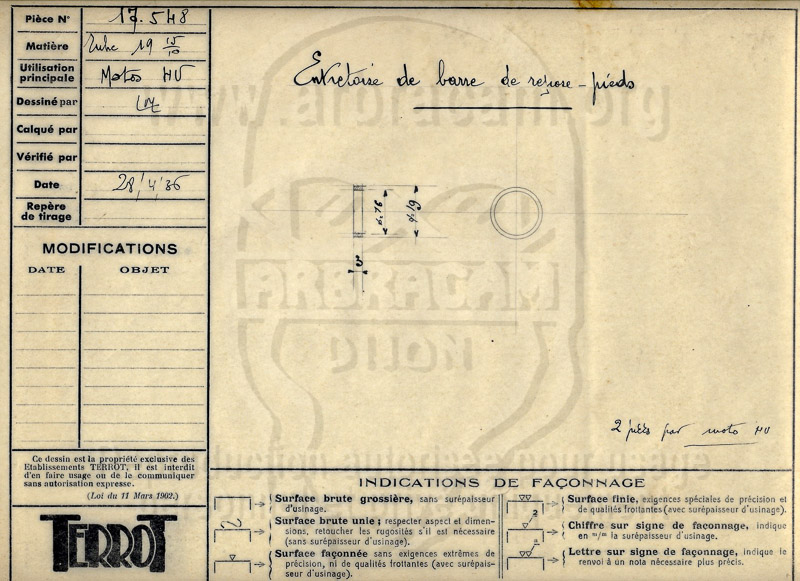 Pièce N° 17.548
Matière Tube 19 15/10
Utilisation principale Motos HV
Dessiné par
Calqué par
Vérifié par
Date 28/4/36
Repère de tirage
MODIFICATIONS
DATE OBJET
Ce dessin est la propriété exclusive des
Etablissements TERROT, il est interdit
d'en faire usage ou de le communiquer
sans autorisation expresse.
(Loi du 11 Mars 1902.)
TERROT
Entretoise de barre de repose-pieds
ø.16
ø 19
3
2 pièces par moto HV
www.arbracam.org
ARBRACAM
DIJON
INDICATIONS DE FAÇONNAGE
Surface brute grossière, sans surépaisseur
d'usinage.
Surface brute unie ; respecter aspect et dimen-
sions, retoucher les rugosités s'il est nécessaire
(sans surépaisseur d'usinage).
Surface façonnée sans exigences extrêmes de
précision, ni de qualités frottantes (avec surépais-
seur d'usinage).
Surface finie, exigences spéciales de précision et
de qualités frottantes (avec surépaisseur d'usinage).
2
Chiffre sur signe de façonnage, indique
en m/m la surépaisseur d'usinage.
a
Lettre sur signe de façonnage, indique le
renvoi à un nota nécessaire plus précis.